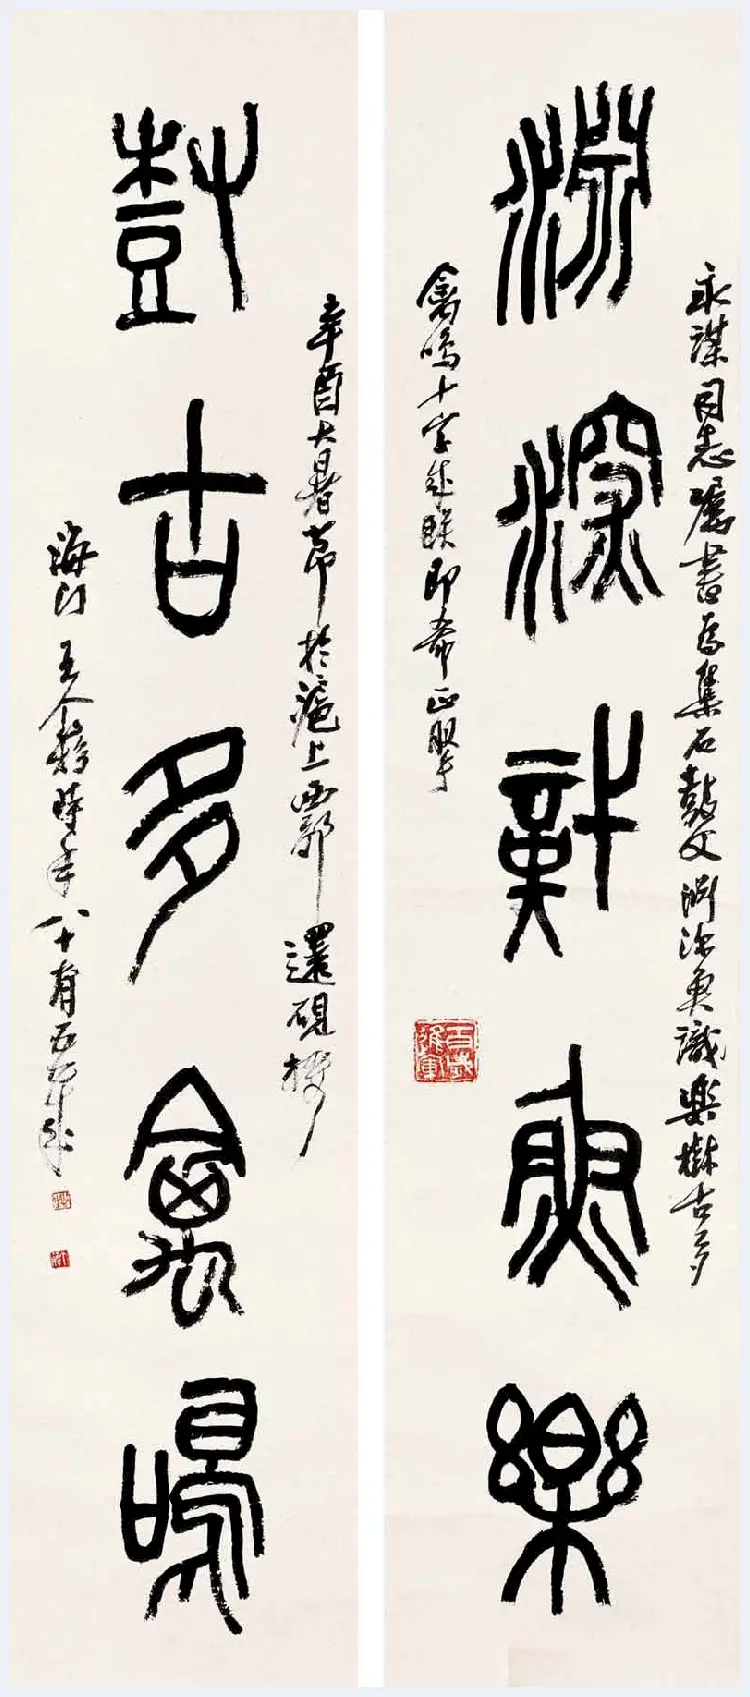 淵深識魚樂
永謀同志屬書為集石鼓文淵深魚識樂樹古多
禽鳴十字成聯即希正掔
樹古多禽鳴
辛酉大暑節於滬上西郭還硯樓
海門王个簃時年八十有五